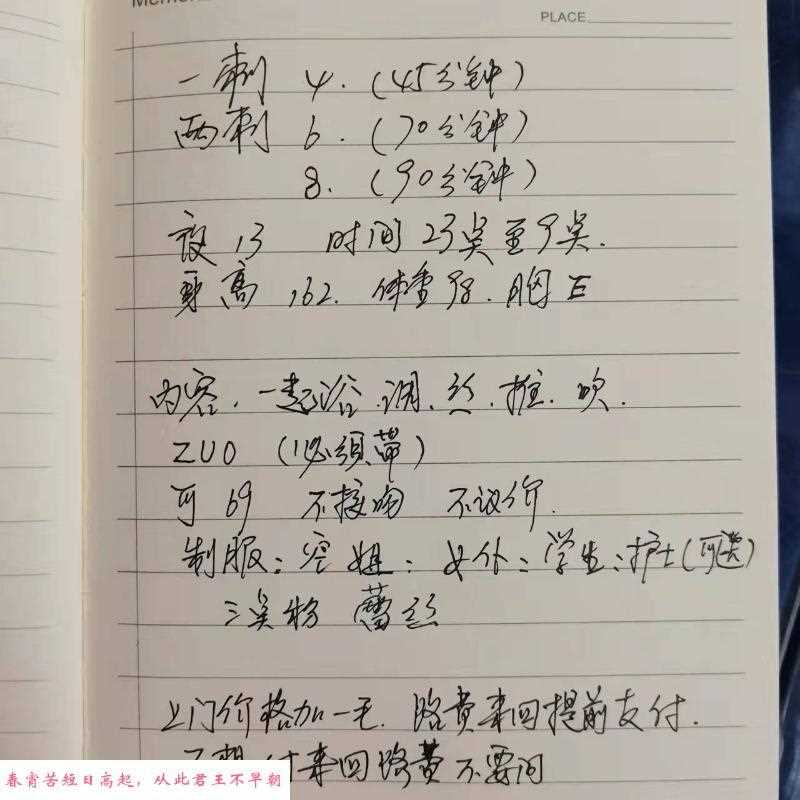 PLACE
一刺 4. (45分钟)
两刺 6. (70分钟)
8. (90分钟)
夜 13 时间 23点至9点.
身高 162. 体重98. 胸E
内容. 一起浴.调.丝.推.吹.
ZUO (必须带)
可 69 不接吻 不议价.
制服:空姐:女仆:学生:护士(可选)
三点粉 蕾丝
上门价格加一毛. 路费来回提前支付.
付来回路费不要问
春宵苦短日高起，从此君王不早朝